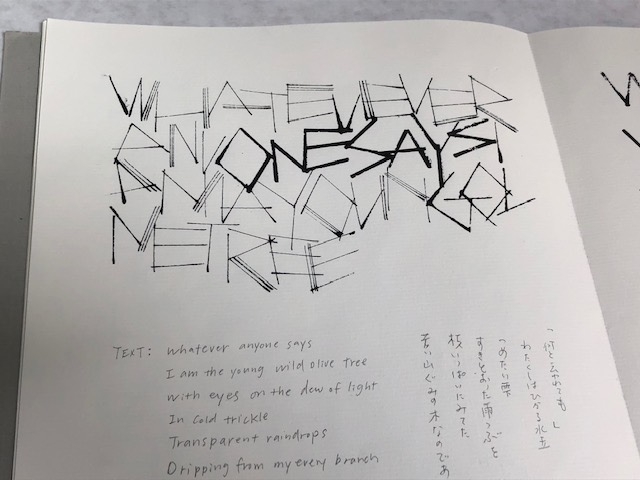 WHATEVER
ANYONE SAYS I
AM A YOUNG OL
NE TREE
TEXT: Whatever anyone says
I am the young wild olive tree
with eyes on the dew of light
In cold trickle
Transparent raindrops
Dripping from my every branch
「何と云われても」
わたくしはひかる水玉
つめたい雫
すきとおった雨つぶを
枝いっぱいにみてた
若い山ぐみの木なのであ